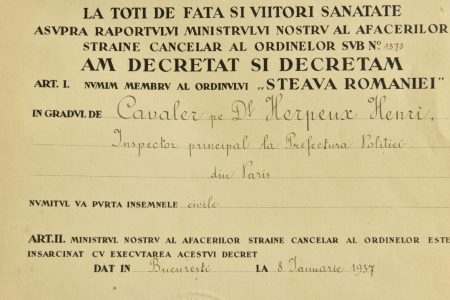 LA TOTI DE FATA SI VIITORI SANATATE
ASVPRA RAPORTVLVI MINISTRVLVI NOSTRV AL AFACERILOR
STRAINE CANCELAR AL ORDINELOR SVB No 1373
AM DECRETAT SI DECRETAM
ART. I. NVMIM MEMBRV AL ORDINVLVI „STEAVA ROMANIEI"
IN GRADVL DE Cavaler pe Dl Herpeux Henri,
Inspector principal la Prefectura Politiei
din Paris
NVMITVL VA PVRTA INSEMNELE civile
ART. II. MINISTRVL NOSTRV AL AFACERILOR STRAINE CANCELAR AL ORDINELOR ESTE
INSARCINAT CV EXECVTAREA ACESTVI DECRET
DAT IN Bucureşti LA 8 Ianuarie 1937